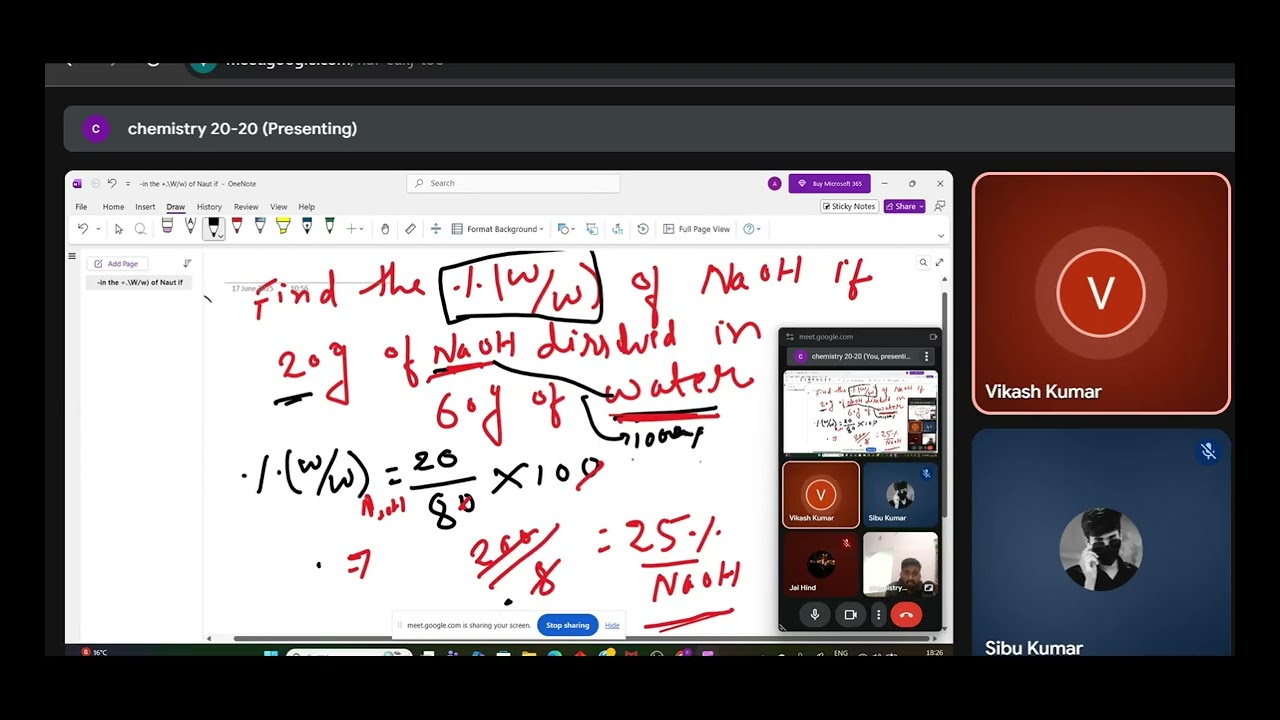 chemistry 20-20 (Presenting)
-in the +.\W/w) of Naut if - OneNote
Search
Buy Microsoft 365
File Home Insert Draw History Review View Help
Sticky Notes
Share
Format Background
Full Page View
Add Page
-in the +.\W/w) of Naut if
10:56
Find the .\.(W/W) of NaOH if
20g of NaOH dissolved in
60g of water
.\.(W/W) = 20/80 × 100
⇒ 200/8 = 25.\.
NaOH
meet.google.com is sharing your screen.
Stop sharing
Hide
meet.google.com
chemistry 20-20 (You, presenti...
Vikash Kumar
Sibu Kumar
Jai Hind
16°C
ENG
18:26
V
Vikash Kumar
Sibu Kumar